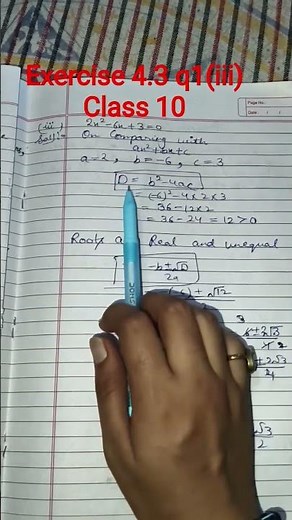 Exercise 4.3 q1(iii)
Class 10
Page No.:
Date:
(iii) 2x² - 6x + 3 = 0
Sol:- On Comparing with
ax² + bx + c
a = 2, b = -6, c = 3
D = b² - 4ac
= (-6)² - 4 × 2 × 3
= 36 - 12 × 2
= 36 - 24 = 12 > 0
Roots Real and unequal
-b ± √D
2a
± √12
± 2√3
2
√3
2